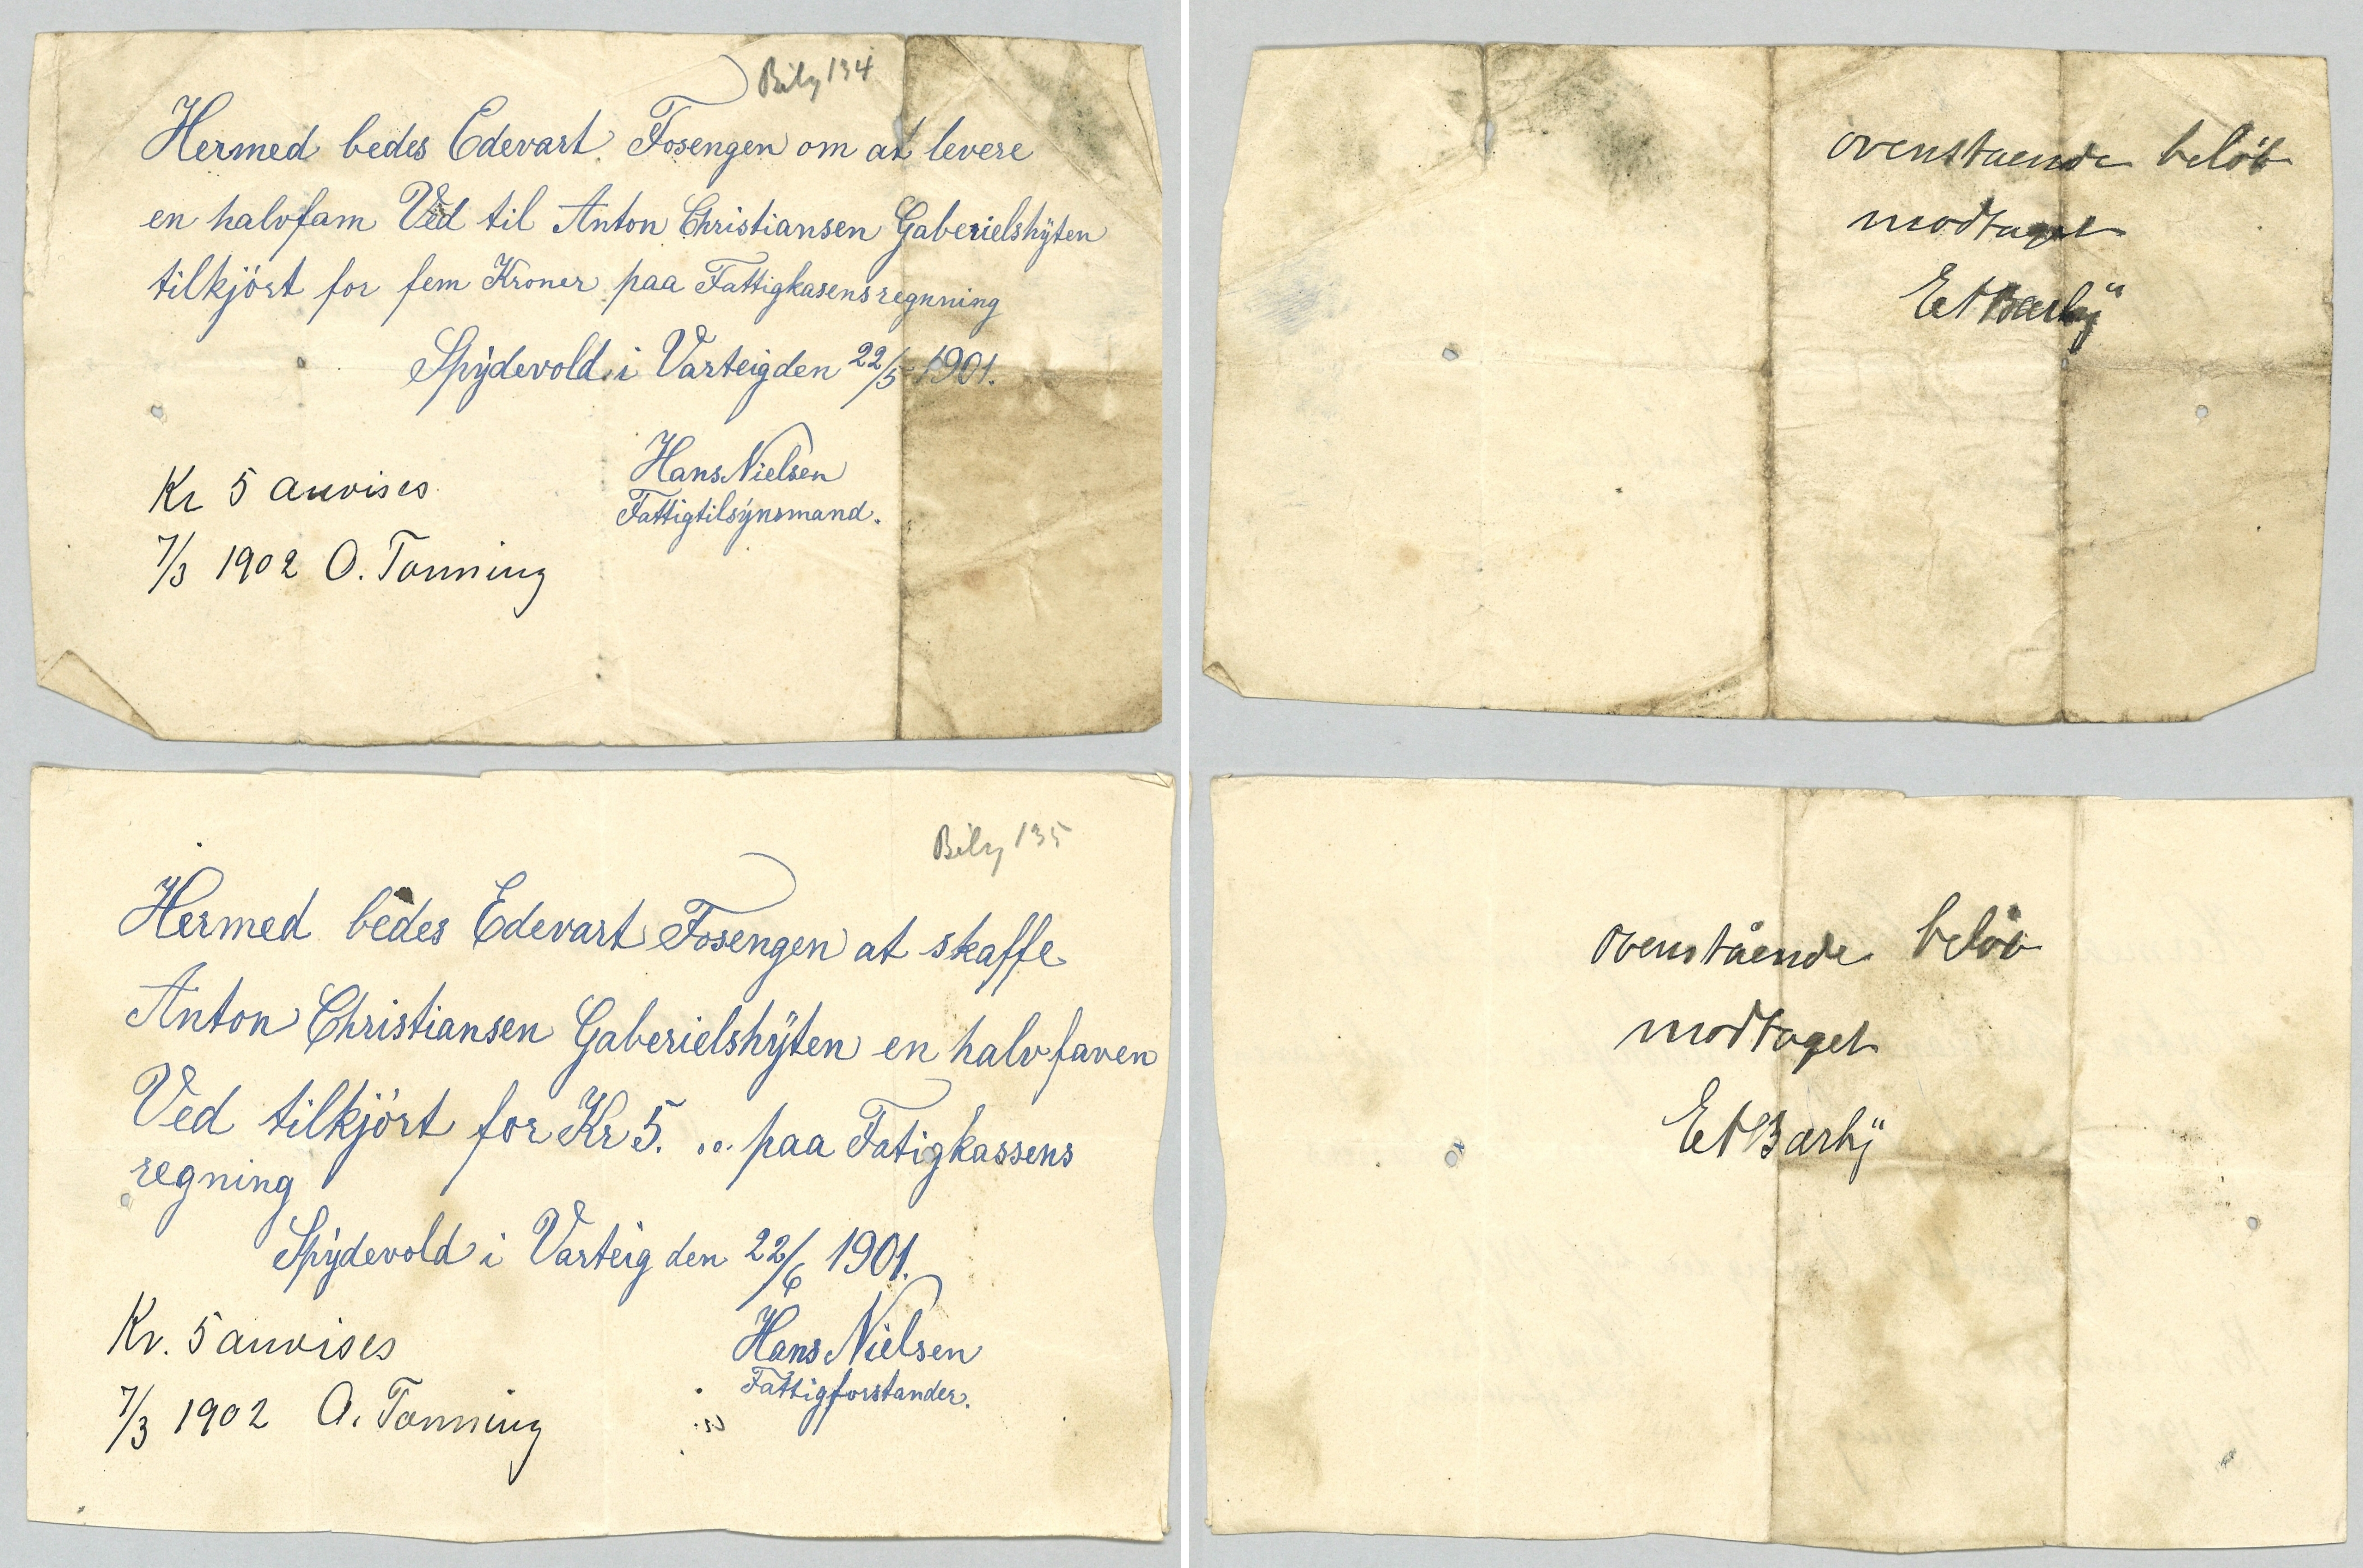 Bilg 134
Hermed bedes Edevart Fosengen om at levere
en halvfam Ved til Anton Christiansen Gaberielshÿten
tilkjört for fem Kroner paa Fattigkasens regnning
Spÿdevold i Varteig den 22/5 1901.
Hans Nielsen
Fattigtilsÿnsmand.
Kr 5 anvises
7/3 1902 O. Tonning
ovenstaende belöb
modtaget
Bilg 135
Hermed bedes Edevart Fosengen at skaffe
Anton Christiansen Gaberielshÿten en halv faven
Ved tilkjört for Kr 5. .. paa Fatigkassens
regning
Spÿdevold i Varteig den 22/6 1901.
Hans Nielsen
Fattigforstander.
Kr. 5 anvises
7/3 1902 O. Tonning
ovenstående belöb
modtaget